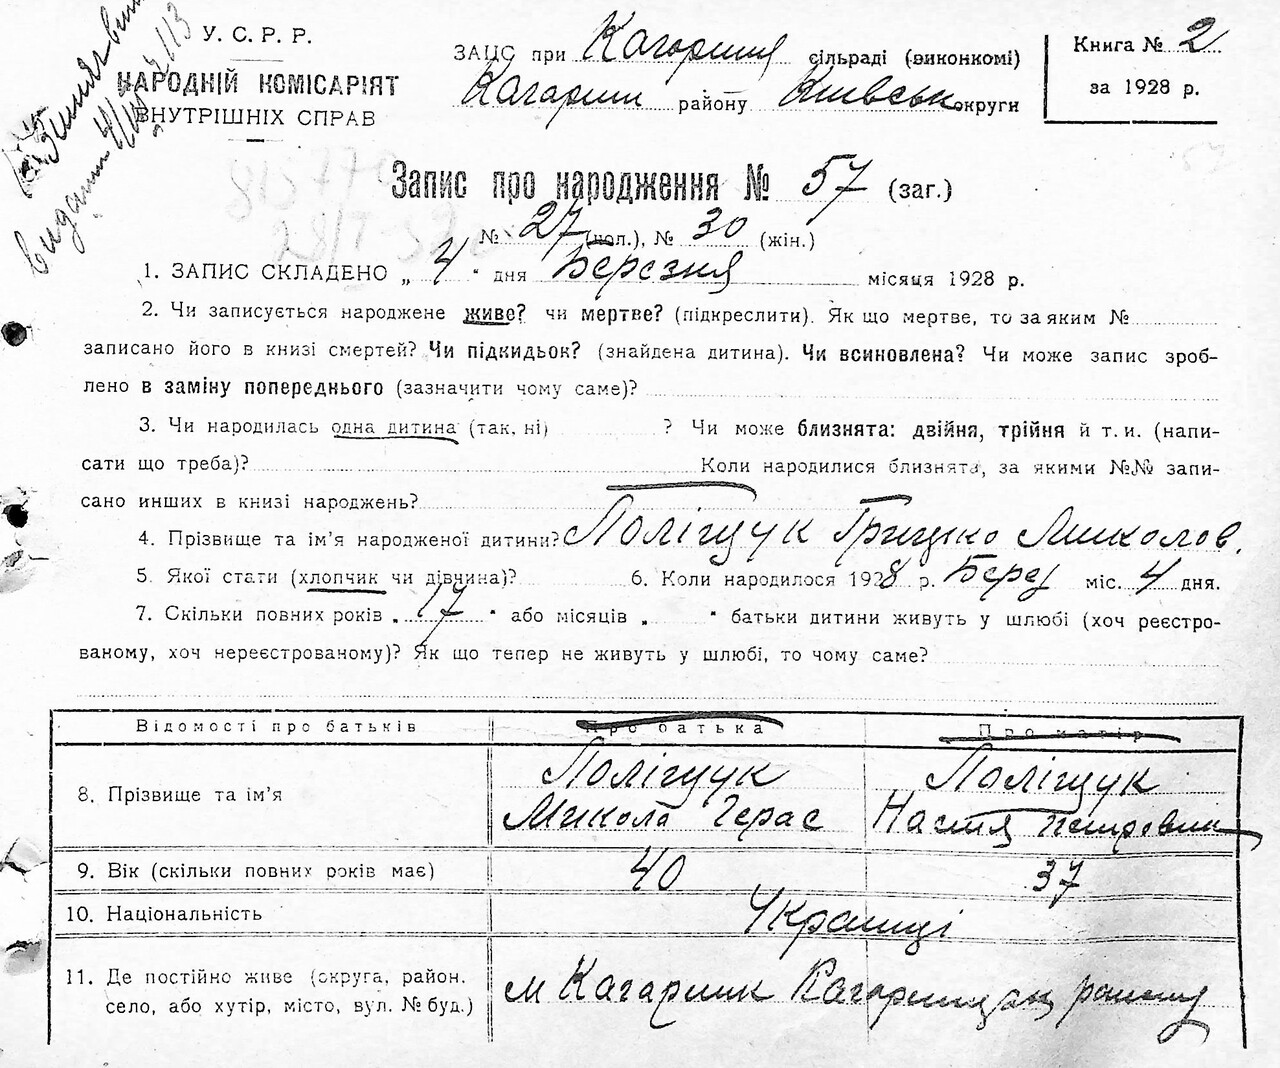 У. С. Р. Р.
НАРОДНІЙ КОМІСАРІЯТ
ВНУТРІШНІХ СПРАВ
ЗАЦС при Кагарлик сільраді (виконкомі)
Кагарлик району Київськ округи
Книга № 2
за 1928 р.
Запис про народження № 57 (заг.)
№ 27 (чол.), № 30 (жін.)
1. ЗАПИС СКЛАДЕНО „ 4 " дня Березня місяця 1928 р.
2. Чи записується народжене живе? чи мертве? (підкреслити). Як що мертве, то за яким №
записано його в книзі смертей? Чи підкидьок? (знайдена дитина). Чи всиновлена? Чи може запис зроб-
лено в заміну попереднього (зазначити чому саме)?
3. Чи народилась одна дитина (так, ні) ? Чи може близнята: двійня, трійня й т. и. (напи-
сати що треба)? Коли народилися близнята, за якими №№ запи-
сано инших в книзі народжень?
4. Прізвище та ім'я народженої дитини? Поліщук Грицько Миколов.
5. Якої стати (хлопчик чи дівчина)? 6. Коли народилося 1928 р. Берез міс. 4 дня.
7. Скільки повних років „ 17 " або місяців „ " батьки дитини живуть у шлюбі (хоч реєстро-
ваному, хоч нереєстрованому)? Як що тепер не живуть у шлюбі, то чому саме?
Відомості про батьків Про батька Про матір
8. Прізвище та ім'я Поліщук Микола Герас Поліщук Настя Петровна
9. Вік (скільки повних років має) 40 37
10. Національність Українці
11. Де постійно живе (округа, район,
село, або хутір, місто, вул. № буд.) м Кагарлик Кагарлицьк району